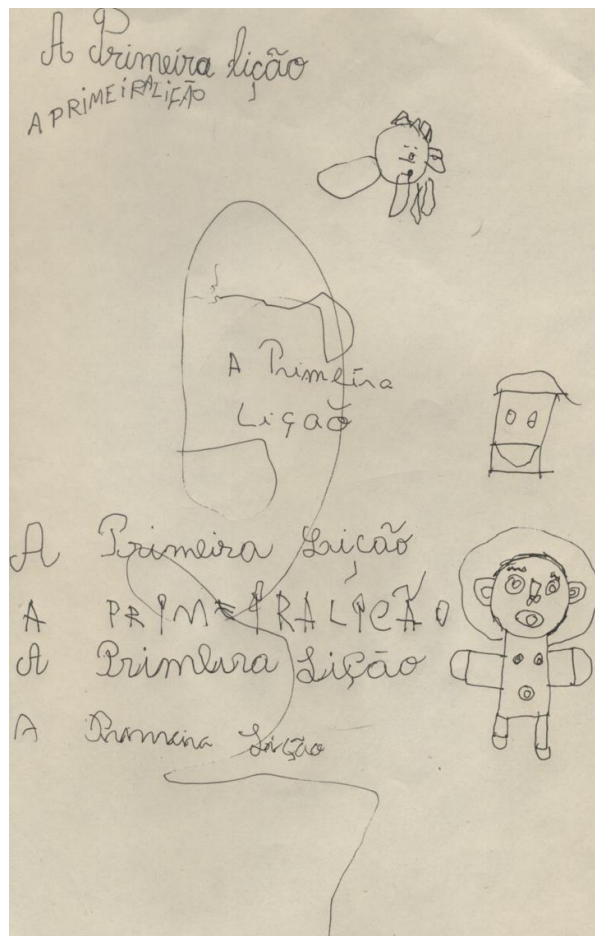 A Primeira lição
A PRIMEIRALIÇÃO
A Primeira
Lição
A Primeira Lição
A PRIMEIRALIÇÃO
A Primeira Lição
A Promeira Lição